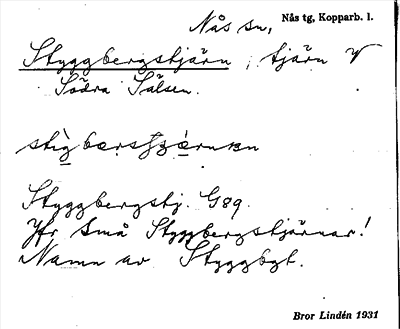 Nås sn, Nås tg, Kopparb. l.
Styggbergstjärn, tjärn V
Södra Sälsen.
Styggbergstj. G89.
Jfr Små Styggbergstjärnar!
Namn av Styggbgt.
Bror Lindén 1931